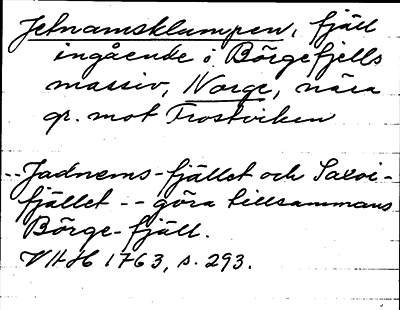 Jetnamsklumpen, fjäll
ingående i Börgefjells
massiv, Norge, nära
gr. mot Frostviken
-- Jadnems-fjället och Saxoi-
fjället -- göra tillsammans
Börge-fjäll.
VHH 1763, s. 293.